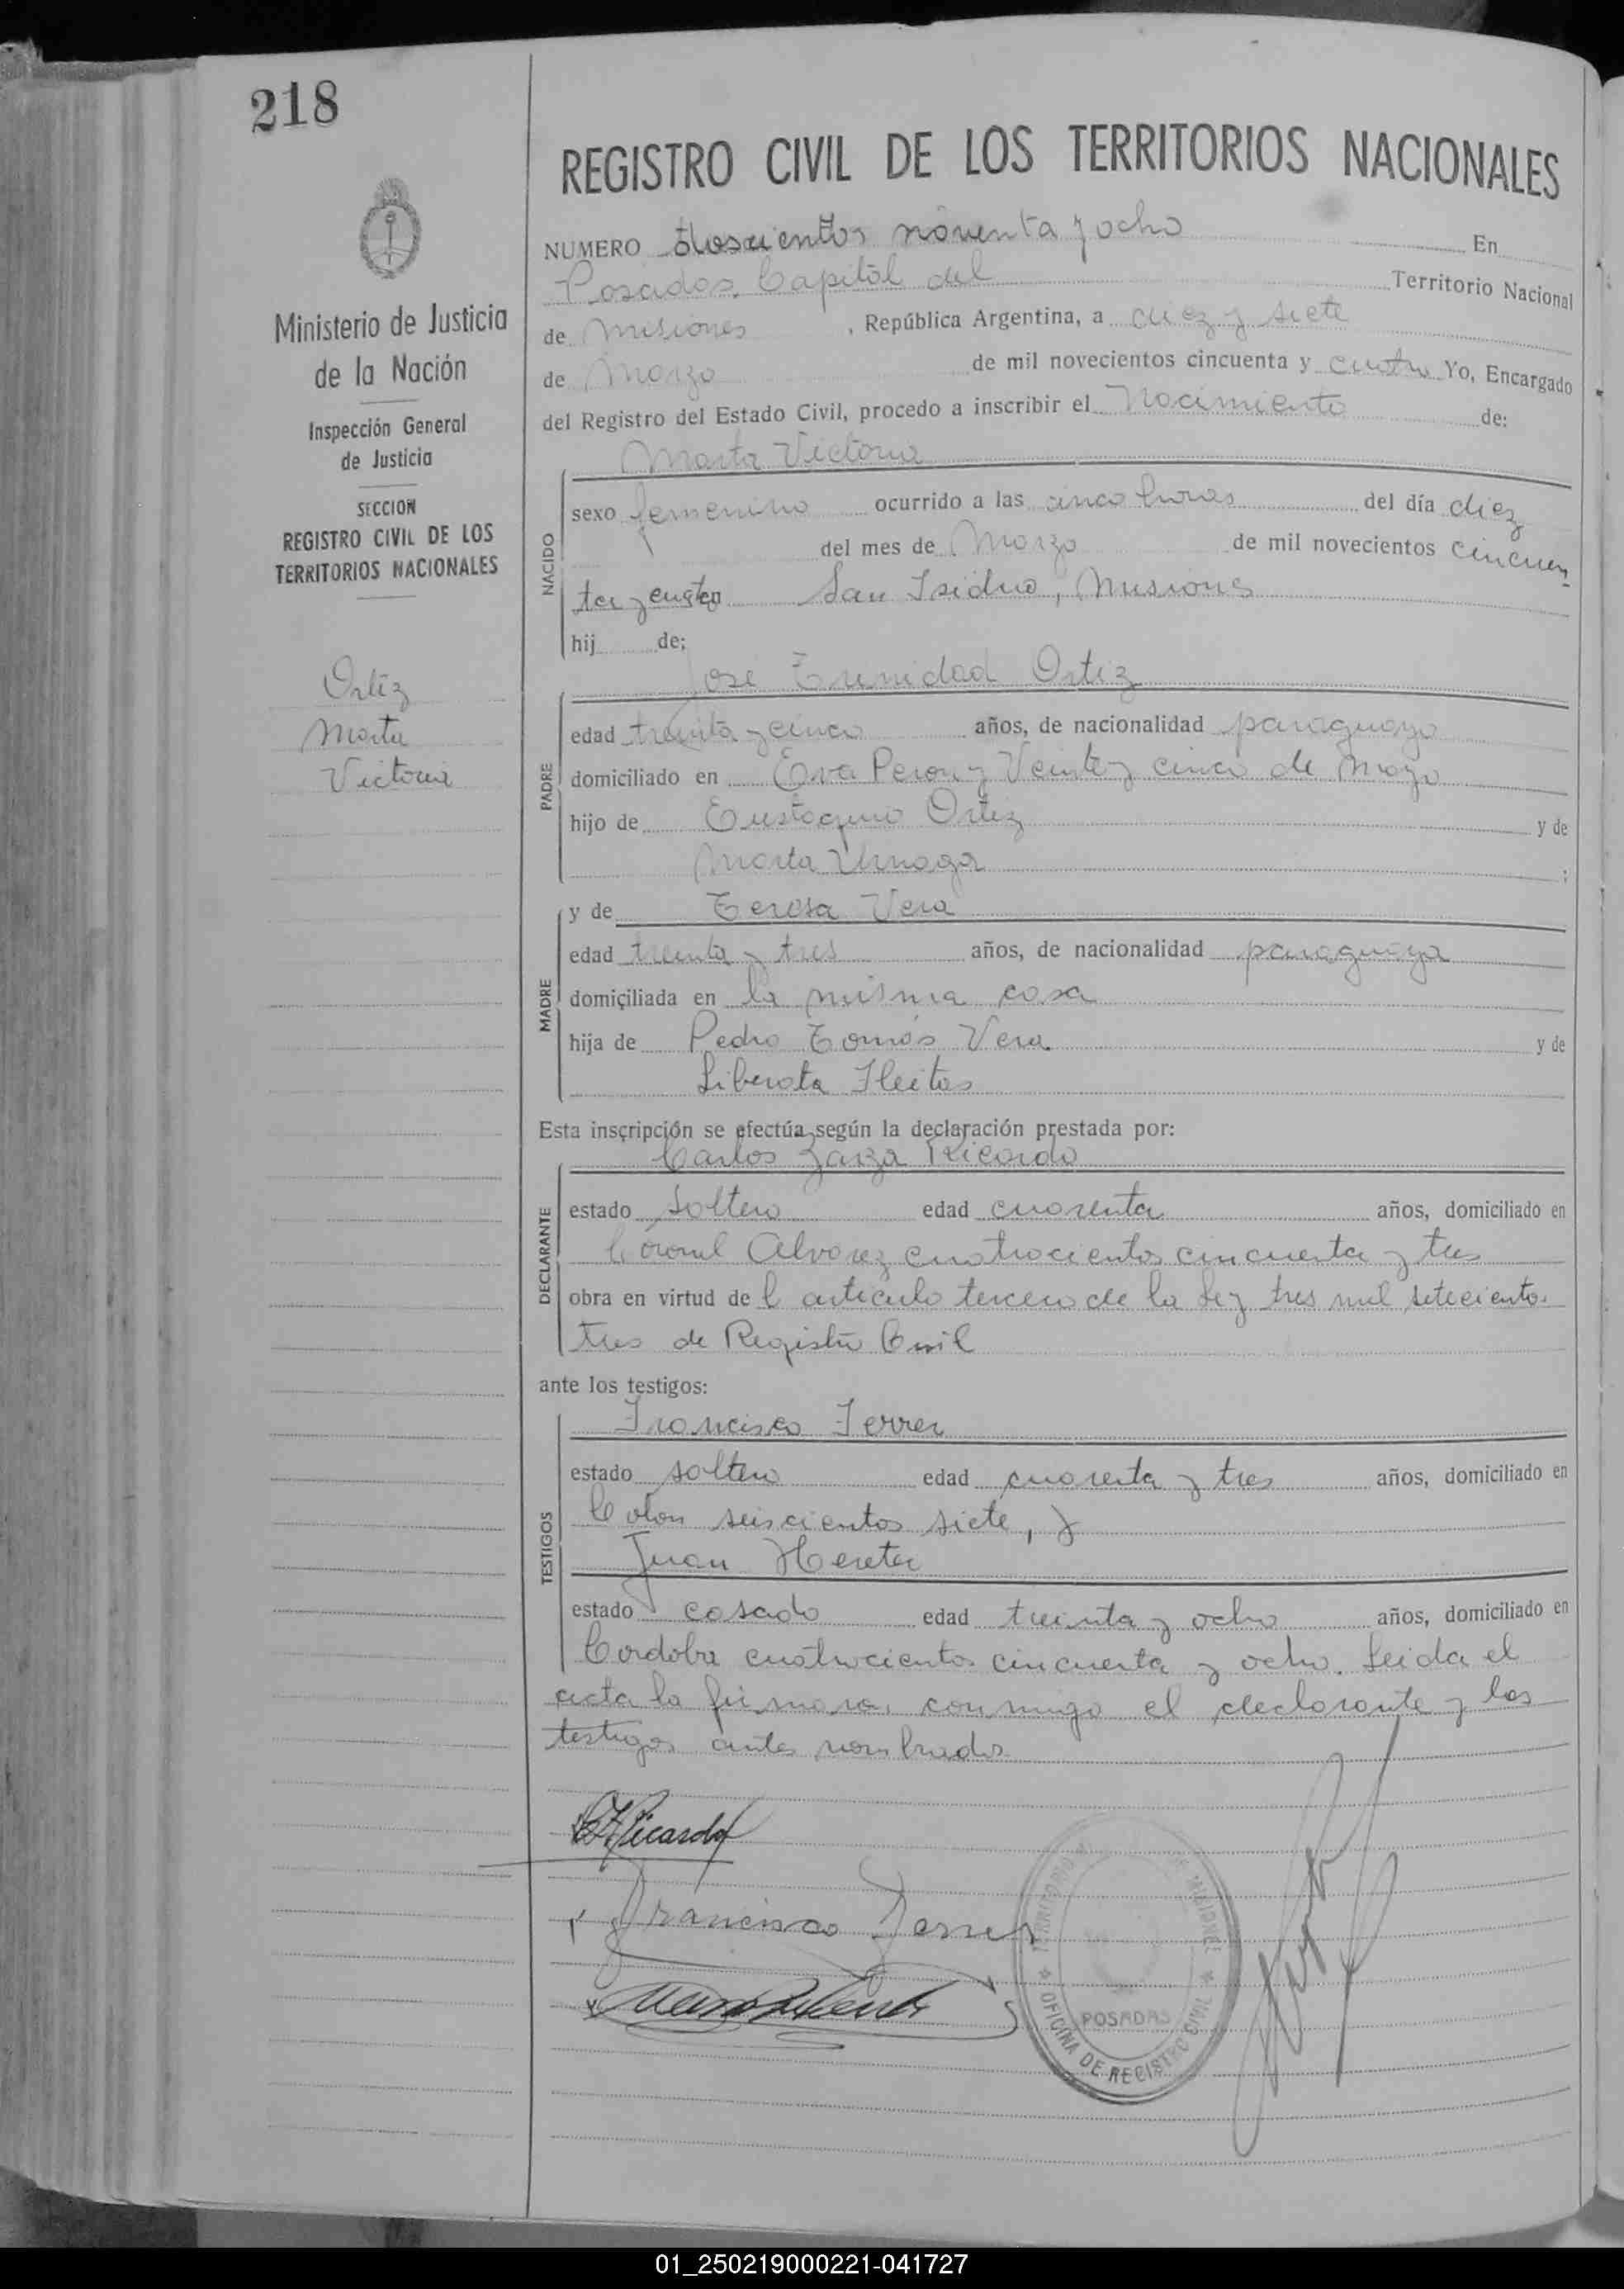 218
Ministerio de Justicia
de la Nación
Inspección General
de Justicia
SECCION
REGISTRO CIVIL DE LOS
TERRITORIOS NACIONALES
Ortiz
Marta
Victoria
REGISTRO CIVIL DE LOS TERRITORIOS NACIONALES
NUMERO doscientos noventa y ocho En
Posadas, Capital del Territorio Nacional
de Misiones, República Argentina, a diez y siete
de Marzo de mil novecientos cincuenta y cuatro Yo, Encargado
del Registro del Estado Civil, procedo a inscribir el Nacimiento de:
Marta Victoria
NACIDO
sexo femenino ocurrido a las cinco horas del día diez
del mes de Marzo de mil novecientos cincuen
ta y cuatro San Isidro, Misiones
hij de:
José Trinidad Ortiz
PADRE
edad treinta y cinco años, de nacionalidad paraguayo
domiciliado en Eva Peron y Veinte y cinco de Mayo
hijo de Eustaquio Ortiz y de
Marta ;
y de Teresa Vera
MADRE
edad treinta y tres años, de nacionalidad paraguaya
domiciliada en la misma casa
hija de Pedro Tomás Vera y de
Liberata Fleitas
Esta inscripción se efectúa según la declaración prestada por:
Carlos Zarza Ricardo
DECLARANTE
estado soltero edad cuarenta años, domiciliado en
Coronel Alvarez cuatrocientos cincuenta y tres
obra en virtud de l articulo tercero de la Ley tres mil setecientos
tres de Registro Civil
ante los testigos:
Francisco Ferrer
TESTIGOS
estado soltero edad cuarenta y tres años, domiciliado en
Colon seiscientos siete, y
Juan Hereter
estado casado edad treinta y ocho años, domiciliado en
Cordoba cuatrocientos cincuenta y ocho. Leida el
acta la firmaron conmigo el declarante y los
testigos antes nombrados
Ricardo
Francisco Ferrer
TERRITORIO DE MISIONES
POSADAS
OFICINA DE REGISTRO CIVIL
01_250219000221-041727